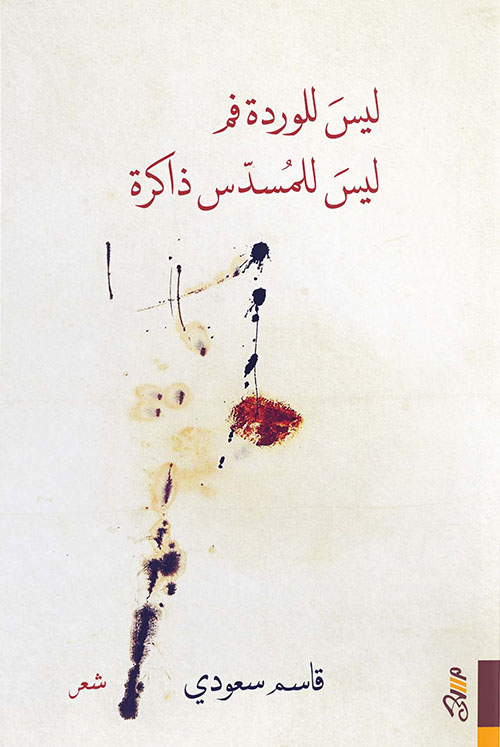 ليسَ للوردة فم
ليسَ للمُسدّس ذاكرة
قاسم سعودي
شعر